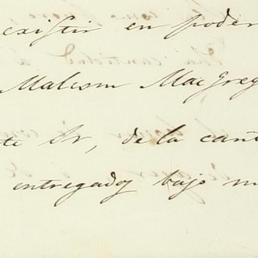 existir en poder
Malcom MacGreg
te Sr, de la can
entregados bajo m